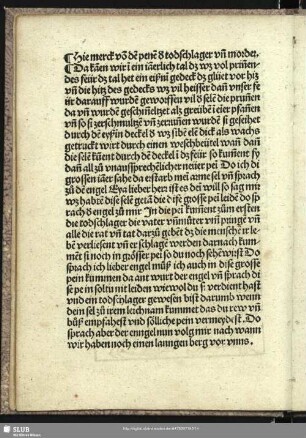 Hie merck võ dẽ penẽ d todschlager vñ morder.
Da kãen wir ĩ ein iãerlich tal dz wz vol prinẽn-
des feür dz tal het ein eyßni gedeck dz glüet vor hitz
vñ die hitz des gedecks wz vil heisser dañ vnser fe
ür darauff wurdẽ geworffen vil d selẽ die prunẽn
da vñ wurdẽ geschmeltzet als geschirbẽ ĩ eĩer pfañen
vñ so si zerschmultzẽ vñ zerunẽn wurdẽ si geseihet
durch dẽ eyßin deckel d wz sibẽ elẽ dick als wachs
getruckt wirt durch einen weschbeütel wañ dañ
die selẽ kãent durch dẽ deckel ĩ dz feür so kumẽnt sy
dañ all zů vnaußsprechelicher neüer pei Do ich di
grossen iãer sahe da erstarb mei arme sel vñ sprach
zů dẽ engel Eya lieber herr ist es dei will so sag mir
wz habẽ dise selẽ getã die dise grosse pei leidẽ do sp
rach d engel zů mir In die pei kumẽnt zum ersten
die todschlager die vater vñ můter vñ pringẽ vñ
alle die rat vñ tat darzů gebẽt dz die menschẽ ir le-
bẽ verliesent vñ erschlagẽ werden darnach kum-
mẽt si noch in grösser pei so du noch sehẽ wirst Do
sprach ich lieber engel můß ich auch in dise grosse
pein kummen da ant wurt der engel vñ sprach di
se pein soltu nit leiden wiewol du sy verdient hast
vnd ein todschlager gewesen bist darumb wenn
dein sel zů irem leichnam kummet das du rew vñ
bůß empfahest vnd sölliche pein vermeydest. Do
sprach aber der enngel nun volg mir nach wann
wir haben noch einen lanngen berg vor vnns.